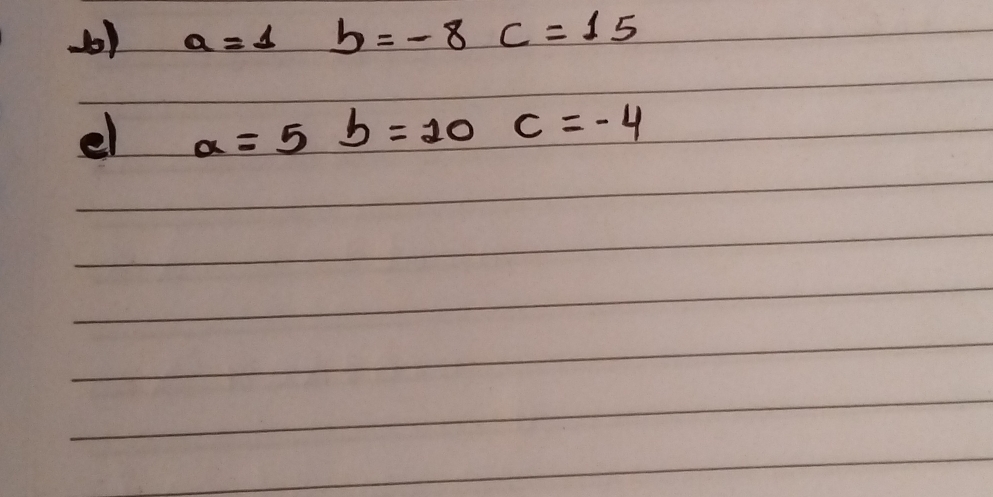 b) a = 1 b = - 8 c = 15
e) a = 5 b = 10 c = - 4